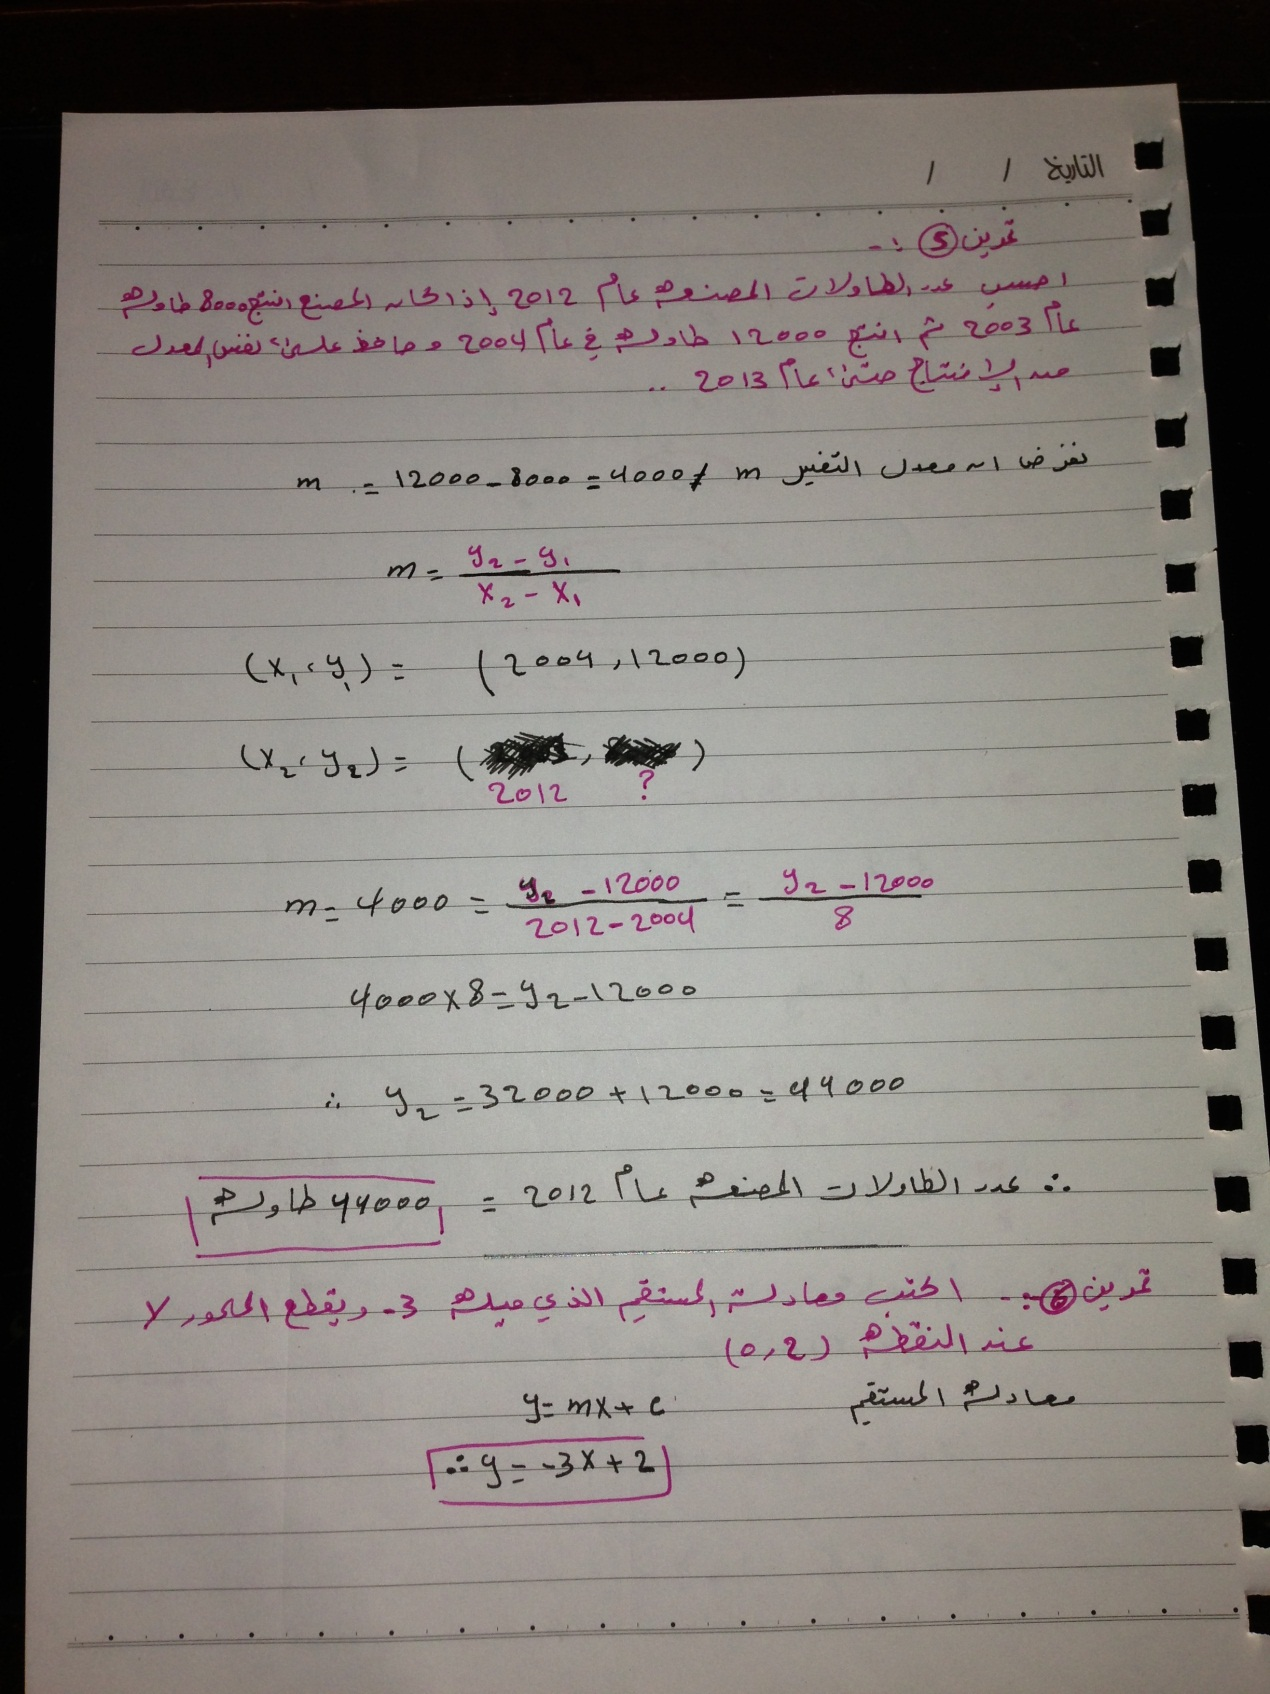 التاريخ / /
تمرين (5) :-
احسب عدد الطاولات المصنعه عام 2012 إذا كان المصنع انتج 8000 طاولة
عام 2003 ثم انتج 12000 طاولة في عام 2004 و حافظ على نفس المعدل
من الإنتاج حتى عام 2013 ..
نفرض ان معدل التغير m m = 12000 - 8000 = 4000
m = (y2 - y1) / (x2 - x1)
(x1, y1) = (2004, 12000)
(x2, y2) = ( , )
2012 ?
m = 4000 = (y2 - 12000) / (2012 - 2004) = (y2 - 12000) / 8
4000 x 8 = y2 - 12000
∴ y2 = 32000 + 12000 = 44000
∴ عدد الطاولات المصنعه عام 2012 = 44000 طاولة
تمرين (6) :- اكتب معادلة المستقيم الذي ميله -3 ويقطع المحور y
عند النقطه (0,2)
معادلة المستقيم y = mx + c
∴ y = -3x + 2